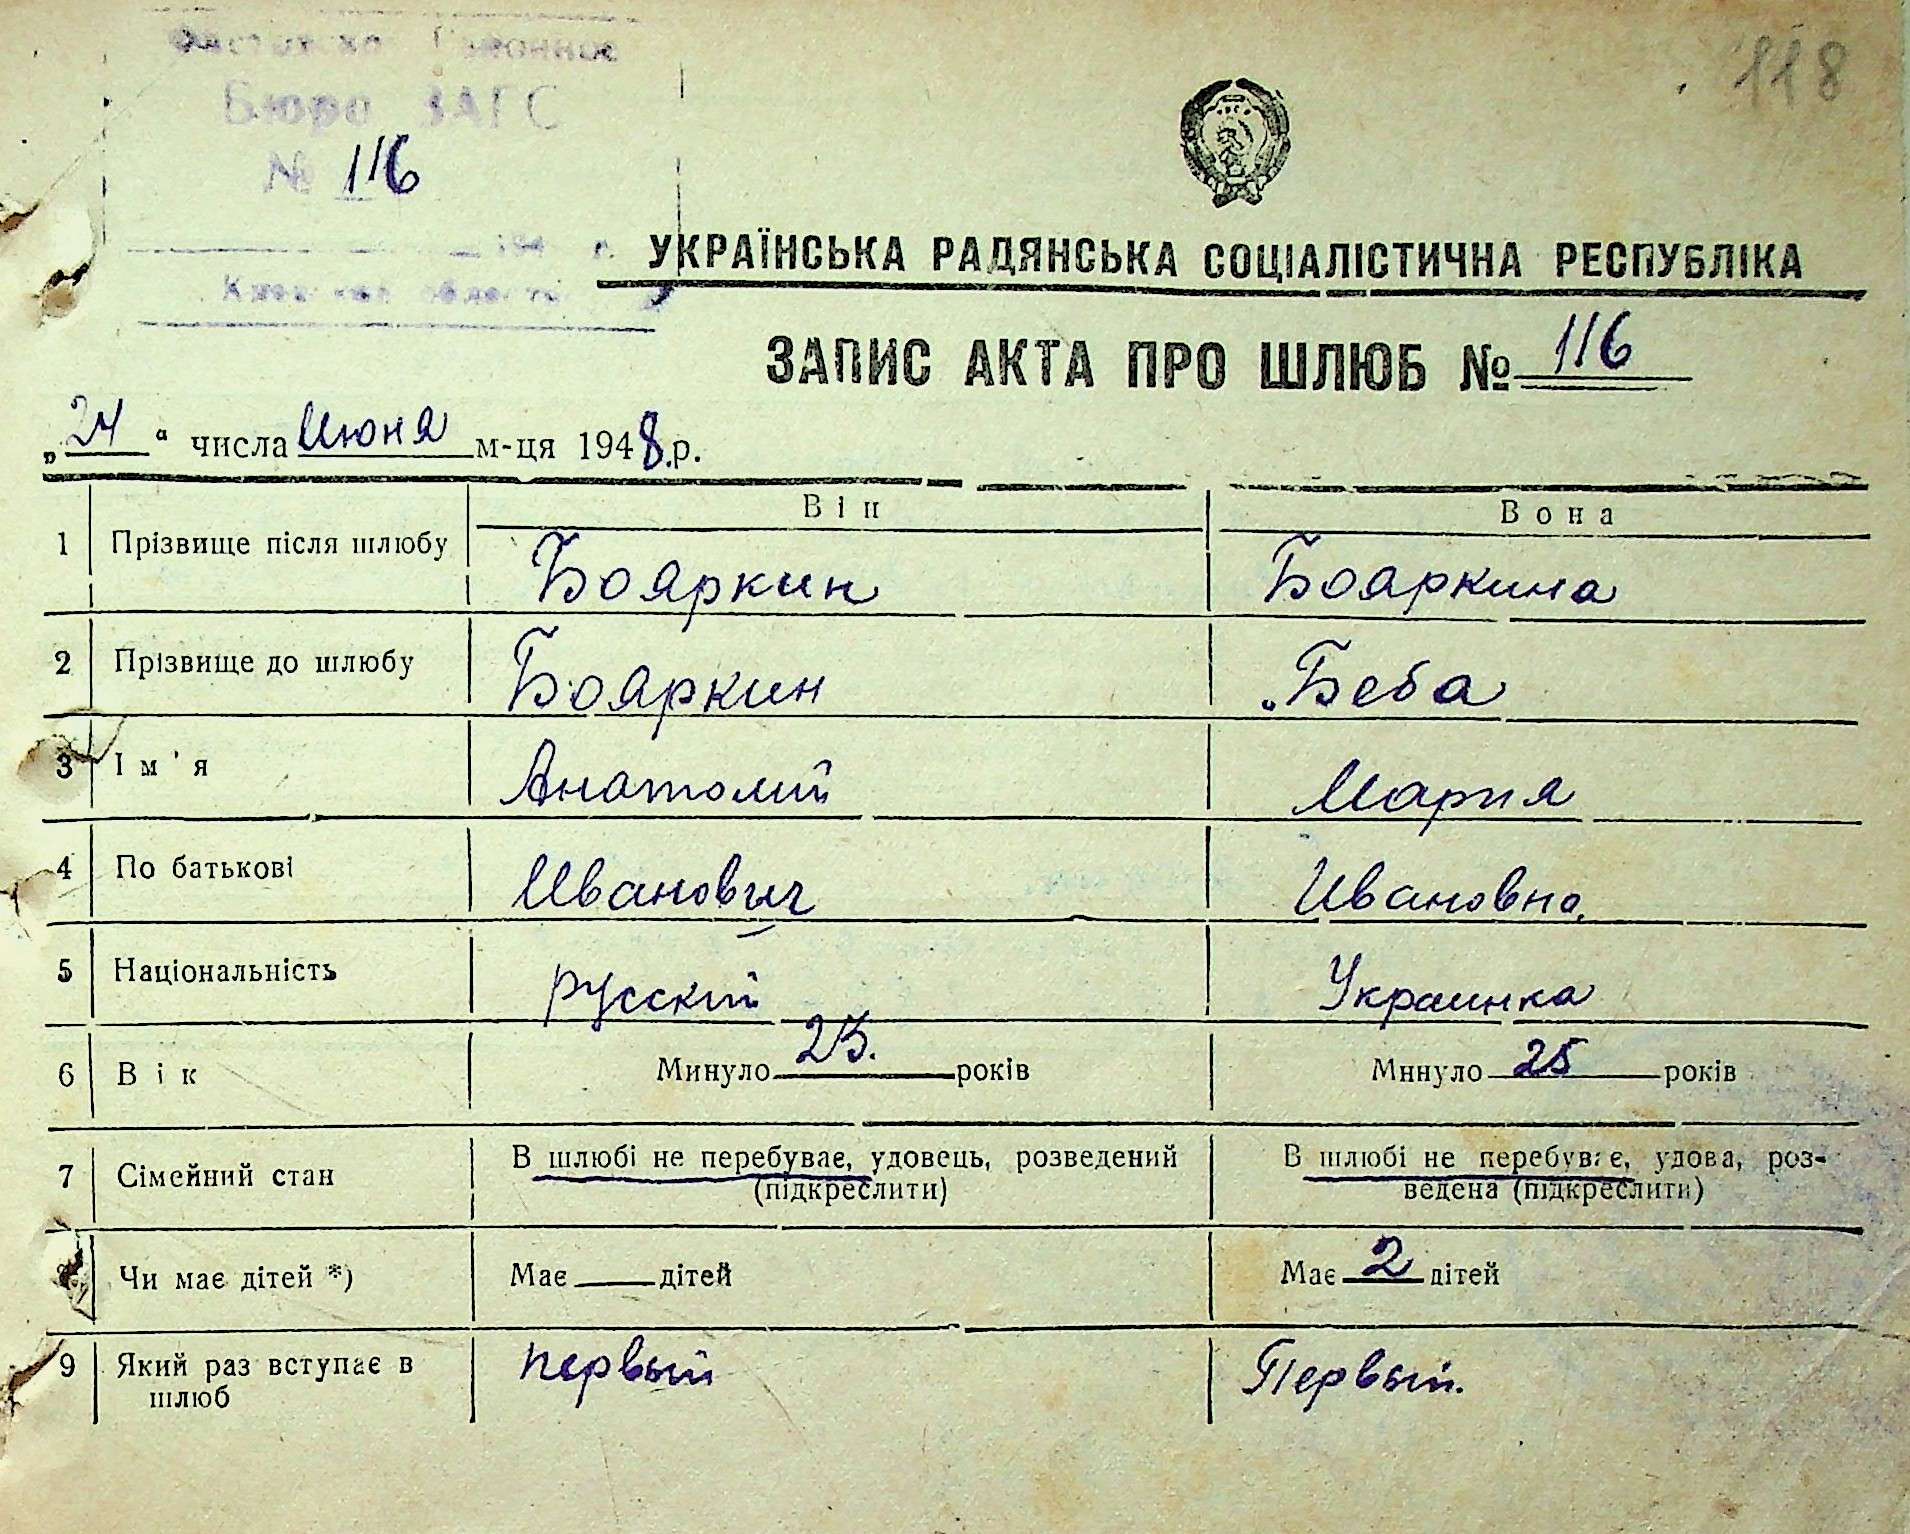 118
Бюро ЗАГС
№ 116
194 г.
УКРАЇНСЬКА РАДЯНСЬКА СОЦІАЛІСТИЧНА РЕСПУБЛІКА
ЗАПИС АКТА ПРО ШЛЮБ № 116
„24“ числа Июня м-ця 1948 р.
Він Вона
1 Прізвище після шлюбу Бояркин Бояркина
2 Прізвище до шлюбу Бояркин Беба
3 Ім'я Анатолий Мария
4 По батькові Иванович Ивановна
5 Національність русский Украинка
6 Вік Минуло 23. років Минуло 25 років
7 Сімейний стан В шлюбі не перебуває, удовець, розведений (підкреслити) В шлюбі не перебуває, удова, роз-
ведена (підкреслити)
8 Чи має дітей *) Має дітей Має 2 дітей
9 Який раз вступає в шлюб первый Первый.